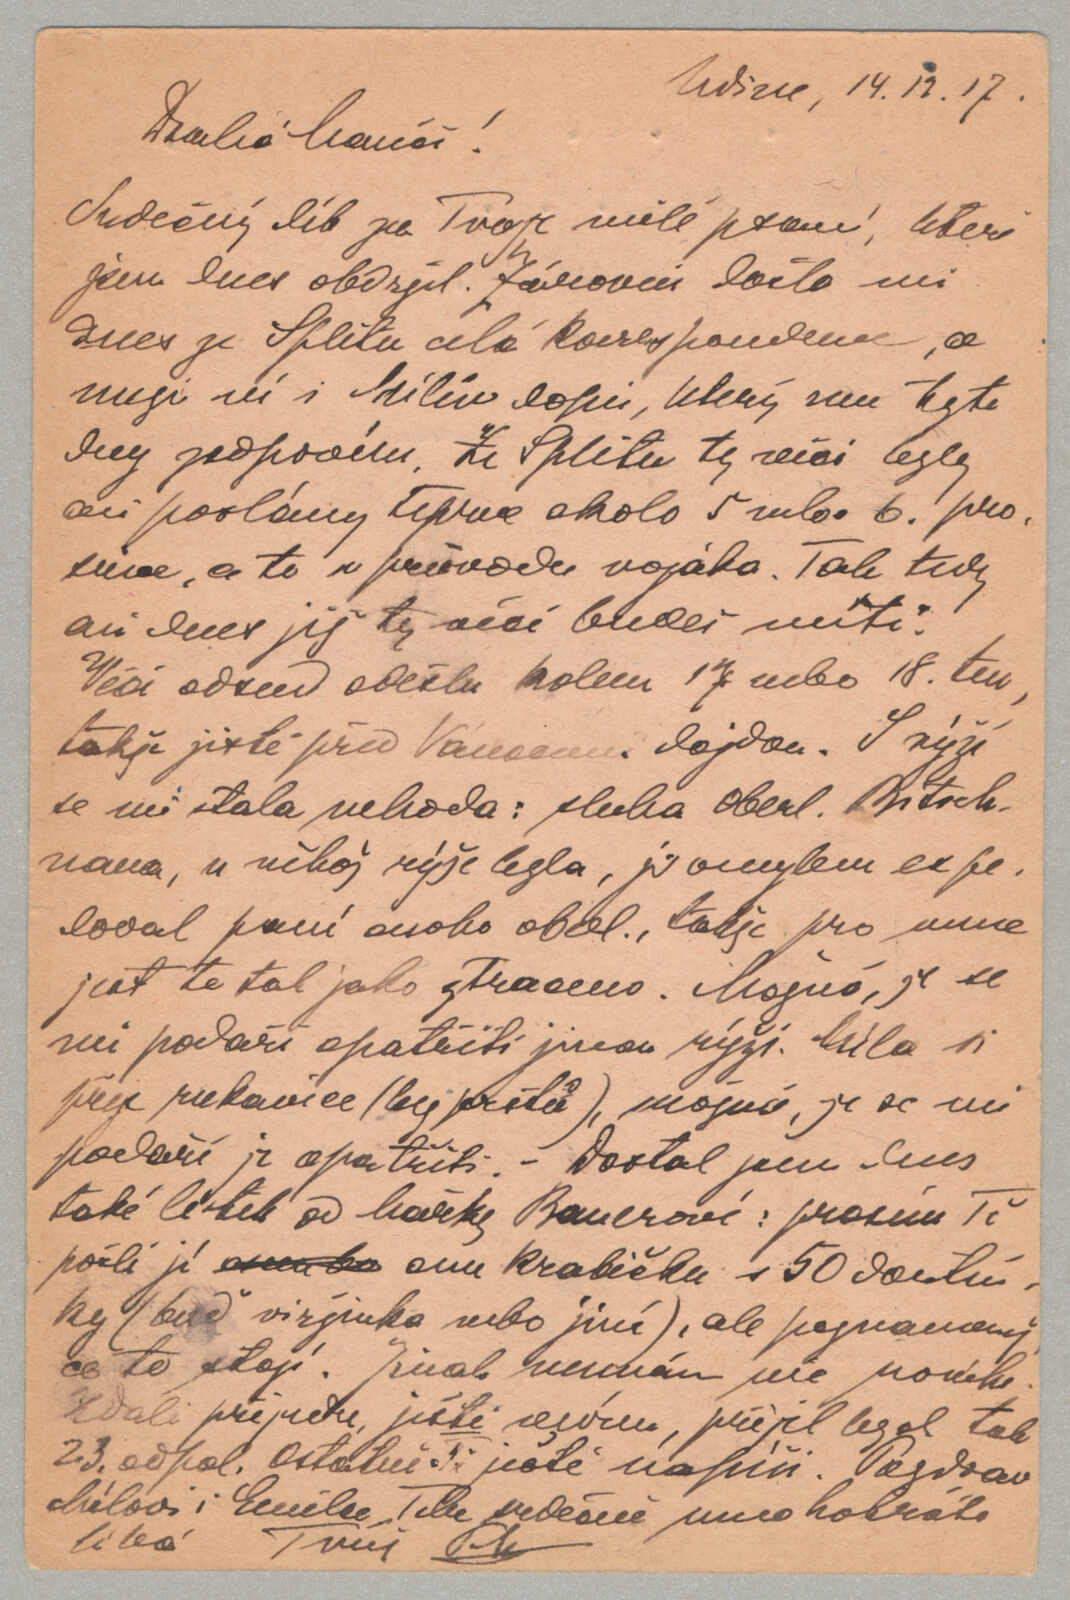 Udine, 14.12.17.
Drahá Mančo!
Srdečný dík za Tvoje milé psaní, které
jsem dnes obdržel. Zároveň došla mi
dnes ze Splitu celá korespondence, a
mezi ní i Mílův dopis, který mu tyto
dny zodpovím. Ze Splitu ty věci byly
asi poslány teprve okolo 5 nebo 6. pro-
since, a to v průvodu vojáka. Tak tedy
asi dnes již ty věci budeš míti.
Věci odsud odešlu kolem 17 nebo 18. ten,
takže jistě před Vánocemi dojdou. S rýží
se mi stala nehoda: sluha Oberl. Bitsch-
nana, u něhož rýže byla, ji omylem expe-
doval paní onoho oberl., takže pro mne
jest to tak jako ztraceno. Možná, že se
mi podaří opatřiti jinou rýži. Míla si
přeje rukavice (bez prstů), možná, že se mi
podaří je opatřiti. - Dostal jsem dnes
také lístek od Mařky Bauerové: prosím Tě
pošli jí onu krabičku s 50 doutní-
ky (buď viržinka nebo jiné), ale poznamenej
co to stojí. Jinak nemám nic nového.
Zdali přijedu, ještě nevím, přijel bych tak
23. odpol. Ostatně Ti ještě napíši. Pozdrav
Mílovi i Emilce, Tebe srdečně mnohokráte
líbá Tvůj